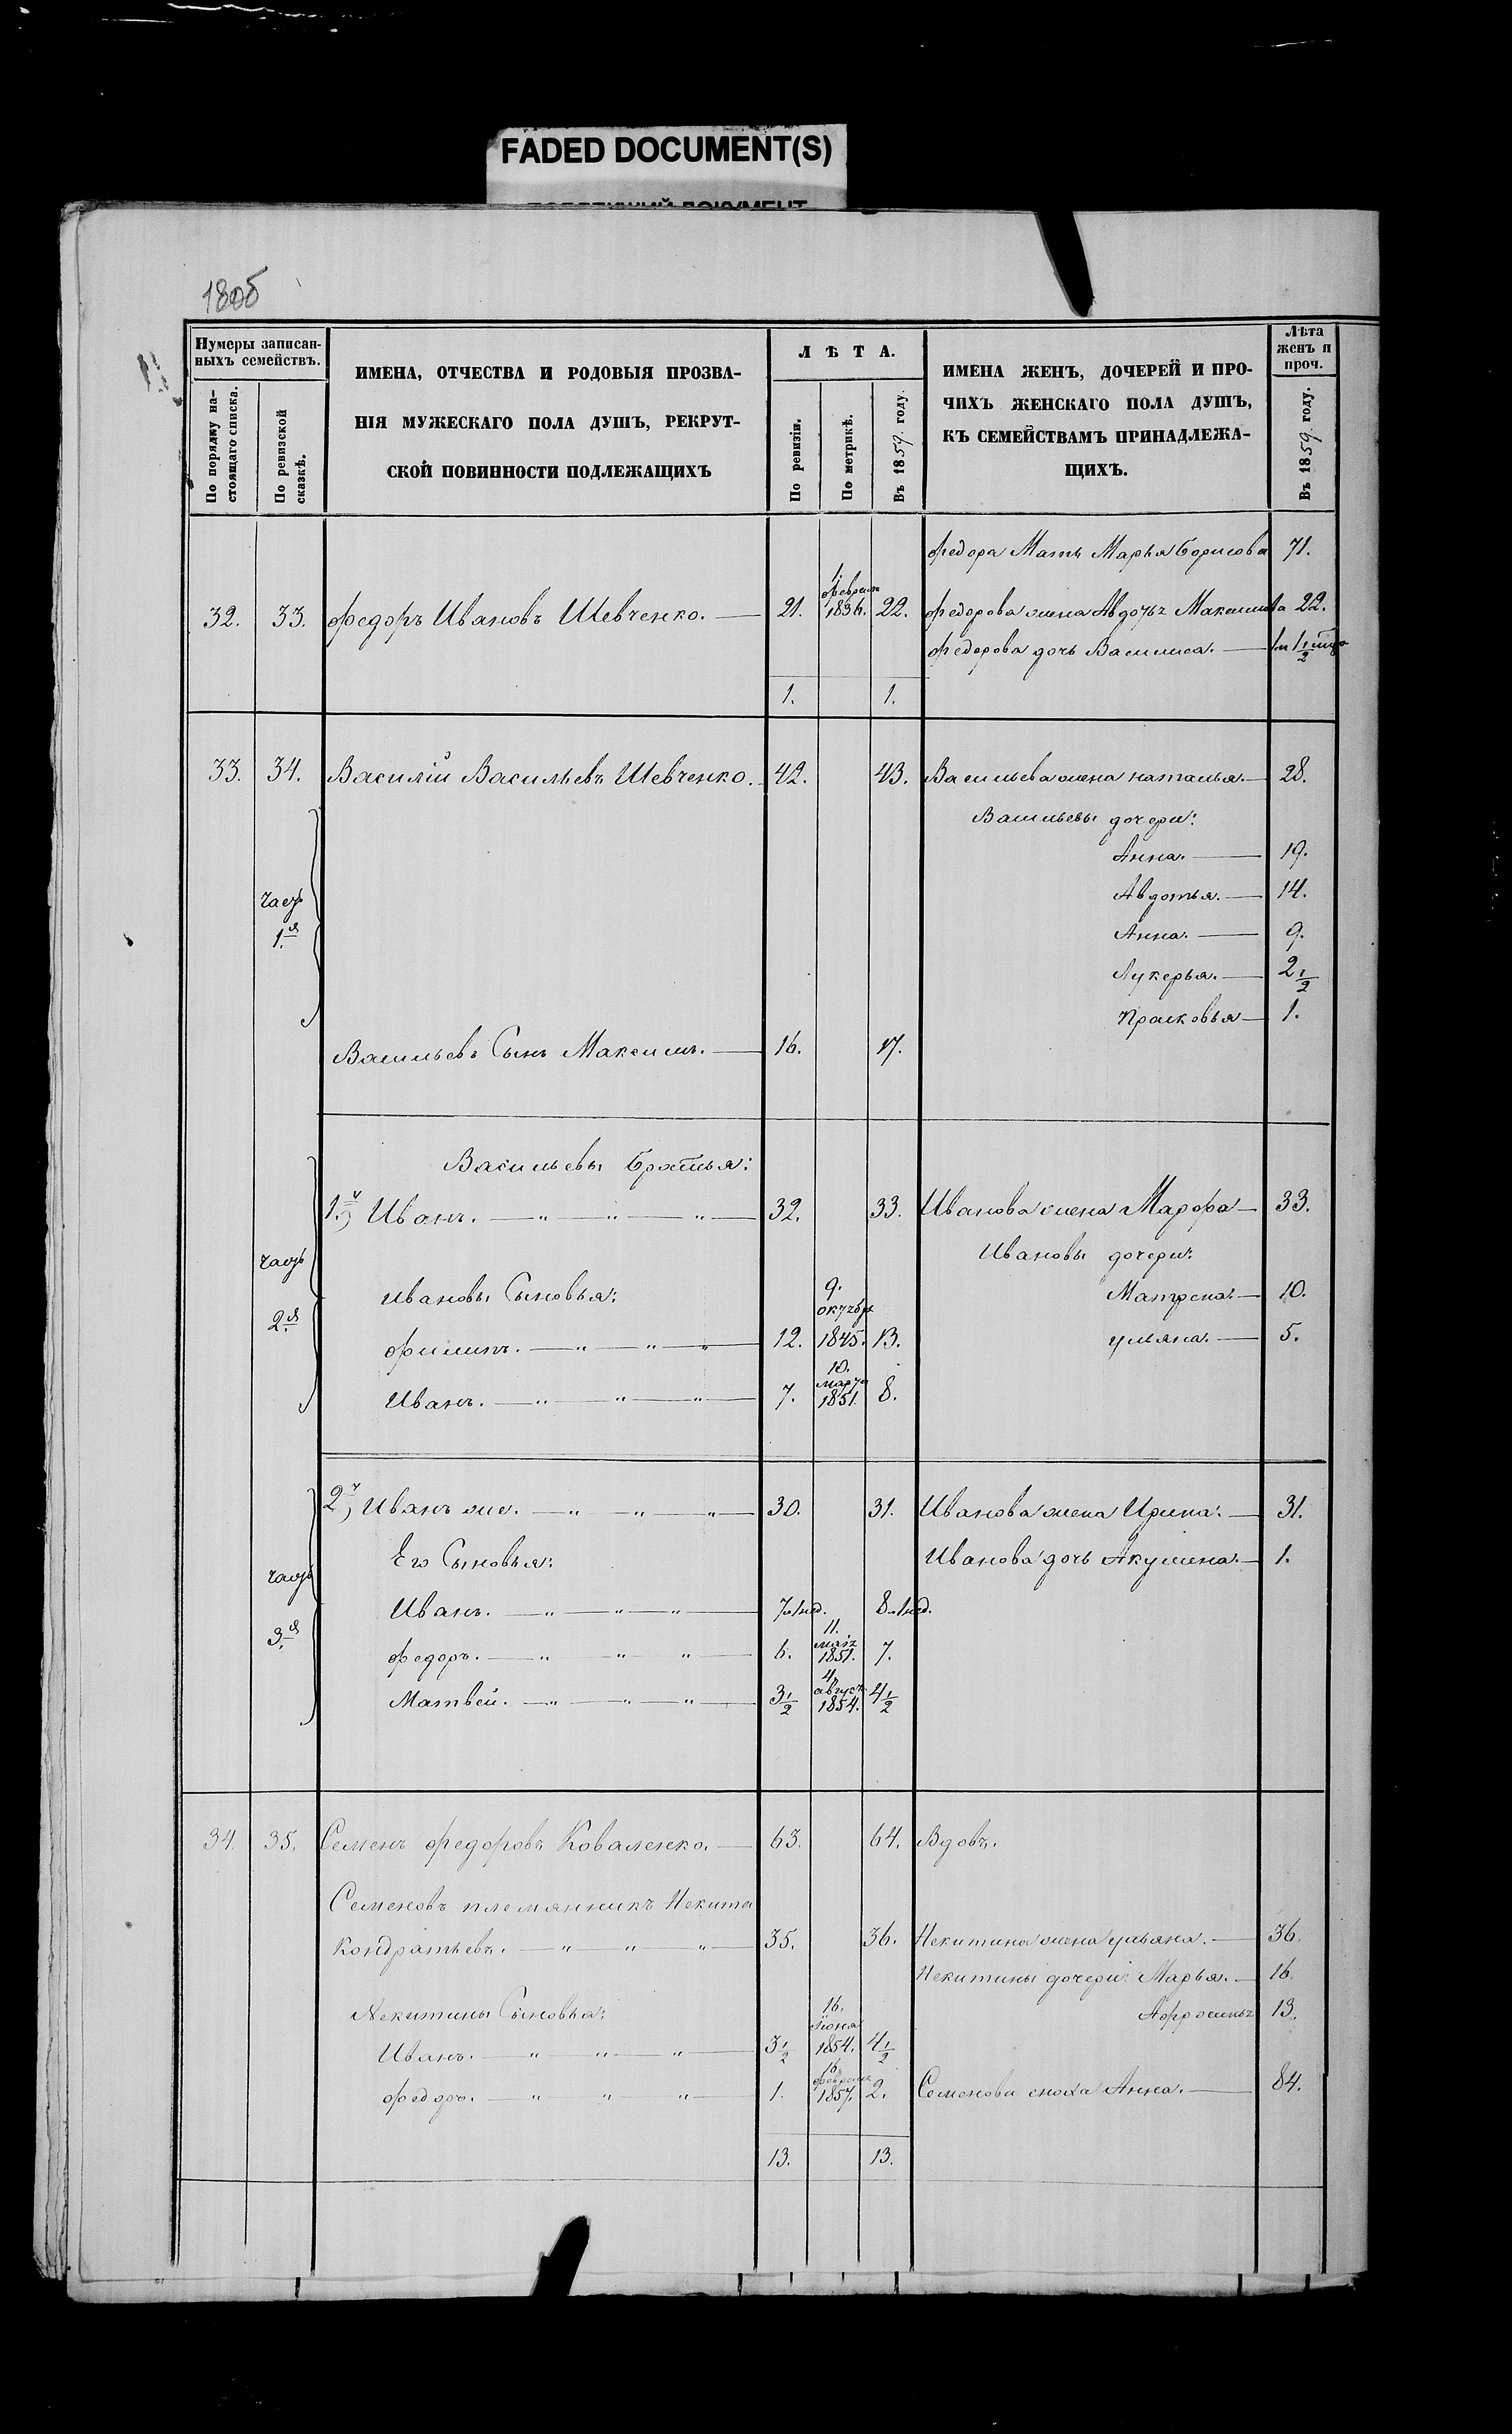 FADED DOCUMENT(S)
1805
Нумеры записан-
ныхъ семействъ.
По порядку на-
стоящаго списка.
По ревизской
сказкѣ.
ИМЕНА, ОТЧЕСТВА И РОДОВЫЯ ПРОЗВА-
НІЯ МУЖЕСКАГО ПОЛА ДУШЪ, РЕКРУТ-
СКОЙ ПОВИННОСТИ ПОДЛЕЖАЩИХЪ
ЛѢТА.
По ревизіи.
По метрикѣ.
Въ 1859 году.
ИМЕНА ЖЕНЪ, ДОЧЕРЕЙ И ПРО-
ЧИХЪ ЖЕНСКАГО ПОЛА ДУШЪ,
КЪ СЕМЕЙСТВАМЪ ПРИНАДЛЕЖА-
ЩИХЪ.
Лѣта
женъ и
проч.
Въ 1859 году.
Федора Мать Марья Борисова 71.
32. 33. Федоръ Ивановъ Шевченко. 21. 1. Февраля 1836. 22. Федорова жена Авдотья 22.
Федорова дочь Василиса.
1. 1.
33. 34. Василій Васильевъ Шевченко. 42. 43. Васильева жена Наталья. 28.
Васильевы дочери:
Анна. 19.
часть Авдотья. 14.
1.я Анна. 9.
Лукерья. 2 1/2
Прасковья 1.
Васильевъ Сынъ Максимъ. 16. 17.
Васильевы Братья:
1.й Иванъ. — " — " — " — 32. 33. Иванова жена Марфа 33.
часть Ивановы дочери:
Ивановы Сыновья: Матрена. 10.
2.я Филипъ. — " — " — " — 12. 9. октября 1845. 13. Ульяна. 5.
Иванъ. — " — " — " — 7. 10. Марта 1851. 8.
2.й Иванъ же. — " — " — " — 30. 31. Иванова жена Ирина. 31.
Его Сыновья: Иванова дочь Акулина. 1.
часть
Иванъ. — " — " — " — 7 8
3.я Федоръ. — " — " — " — 6. 11. Маія 1851. 7.
Матвей. — " — " — " — 3 1/2 4. август. 1854. 4 1/2
34. 35. Семенъ Федоровъ Коваленко. 63. 64. Вдовъ.
Семеновъ племянникъ Некита
Кондратьевъ. — " — " — " — 35. 36. Некитина жена Ульяна. 36.
Некитины дочери: Марья. 16.
Некитины Сыновья: 13.
Иванъ. — " — " — " — 3 1/2 16. Іюня 1854. 4 1/2
Федоръ. — " — " — " — 1. 16. Февраля 1857. 2. Семенова сноха Анна. 84.
13. 13.